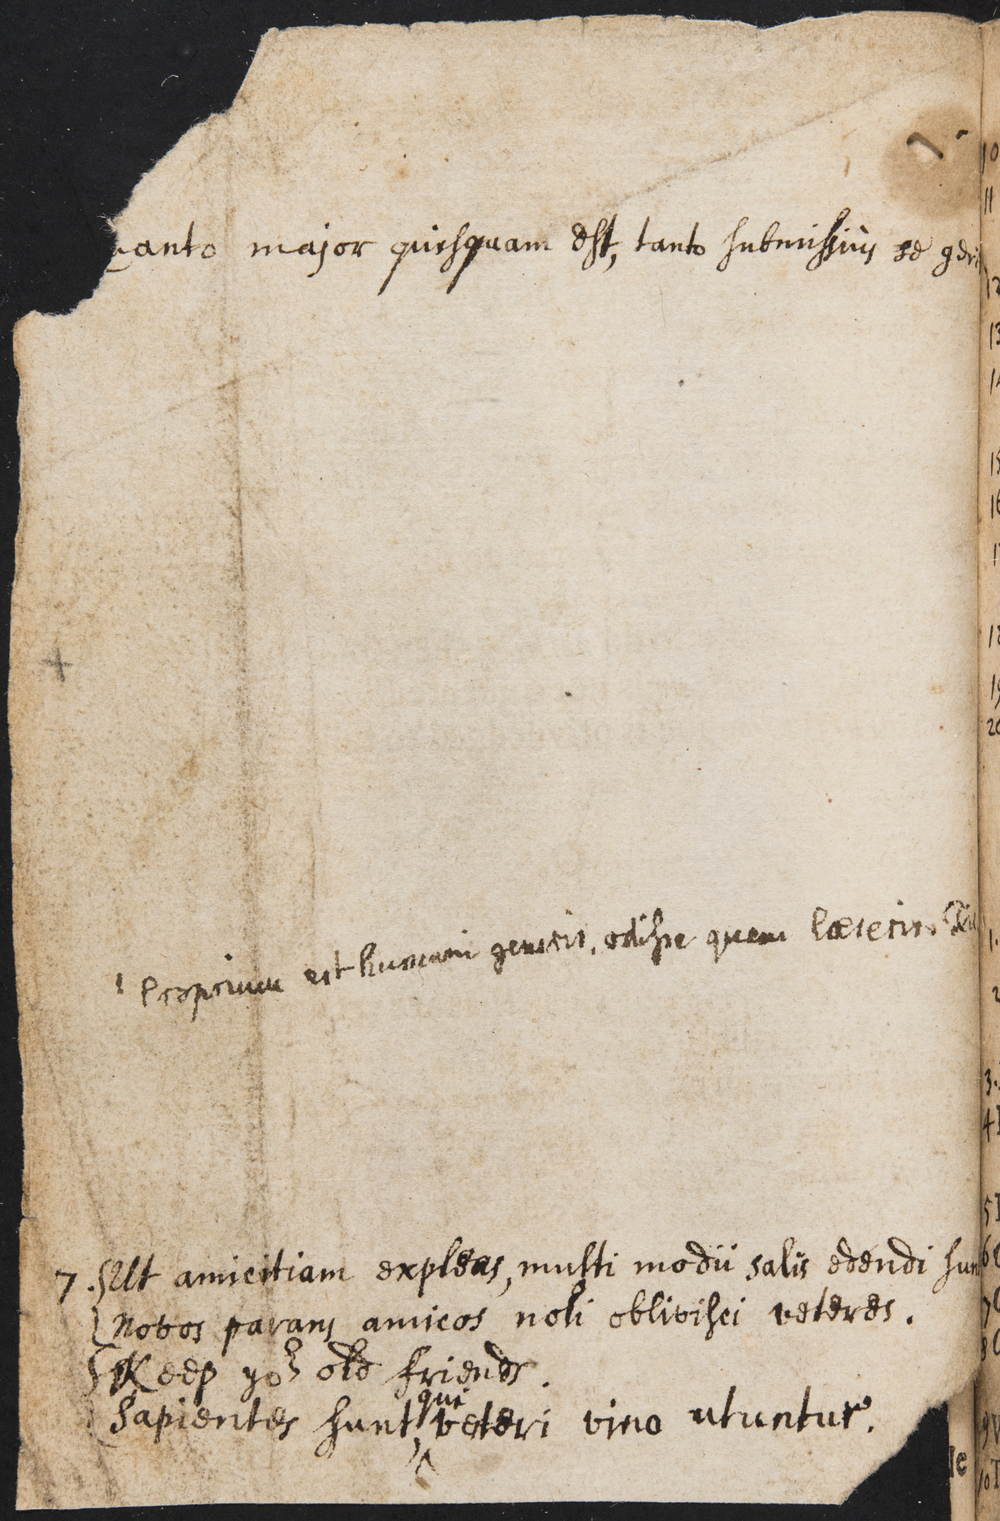 anto major quisquam est, tanto submissius se geri
1 Proprium est humani generis, odisse quem læseris.
7. Ut amicitiam expleas, multi modii salis edendi sun
Novos parans amicos noli oblivisci veteres.
Keep yor old friends.
Sapientes sunt, qui veteri vino utuntur.
10
11
12
13
15
16
19
20
3.